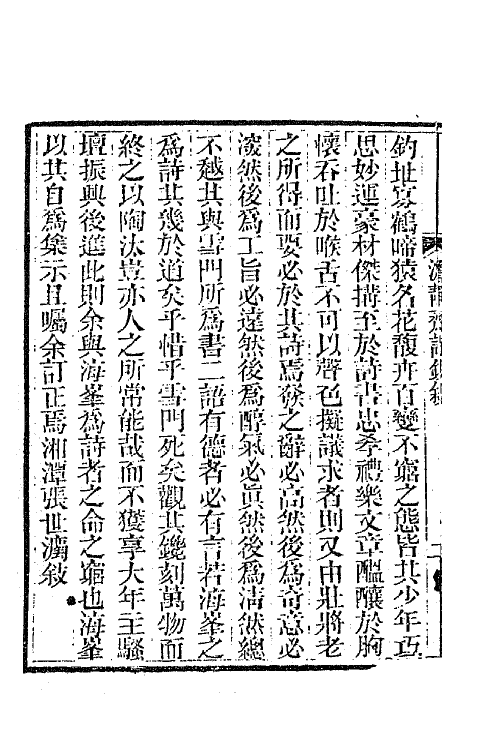 釣址寡鶴啼猿名花馥卉百變不窮之態皆其少年巧
思妙運豪材傑搆至於詩書忠孝禮樂文章醞釀於胸
懷吞吐於喉舌不可以聲色擬議求者則又由壯將老
之所得而要必於其詩焉發之辭必高然後爲奇意必
深然後爲工旨必遠然後爲醇氣必眞然後爲清然總
不越其與雲門所爲書二語有德者必有言若海峯之
爲詩其幾於道矣乎惜乎雲門死矣觀其鑱刻萬物而
終之以陶汰豈亦人之所常能哉而不獲享大年主騷
壇振興後進此則余與海峯爲詩者之命之窮也海峯
以其自爲集示且囑余訂正焉湘潭張世濿敍